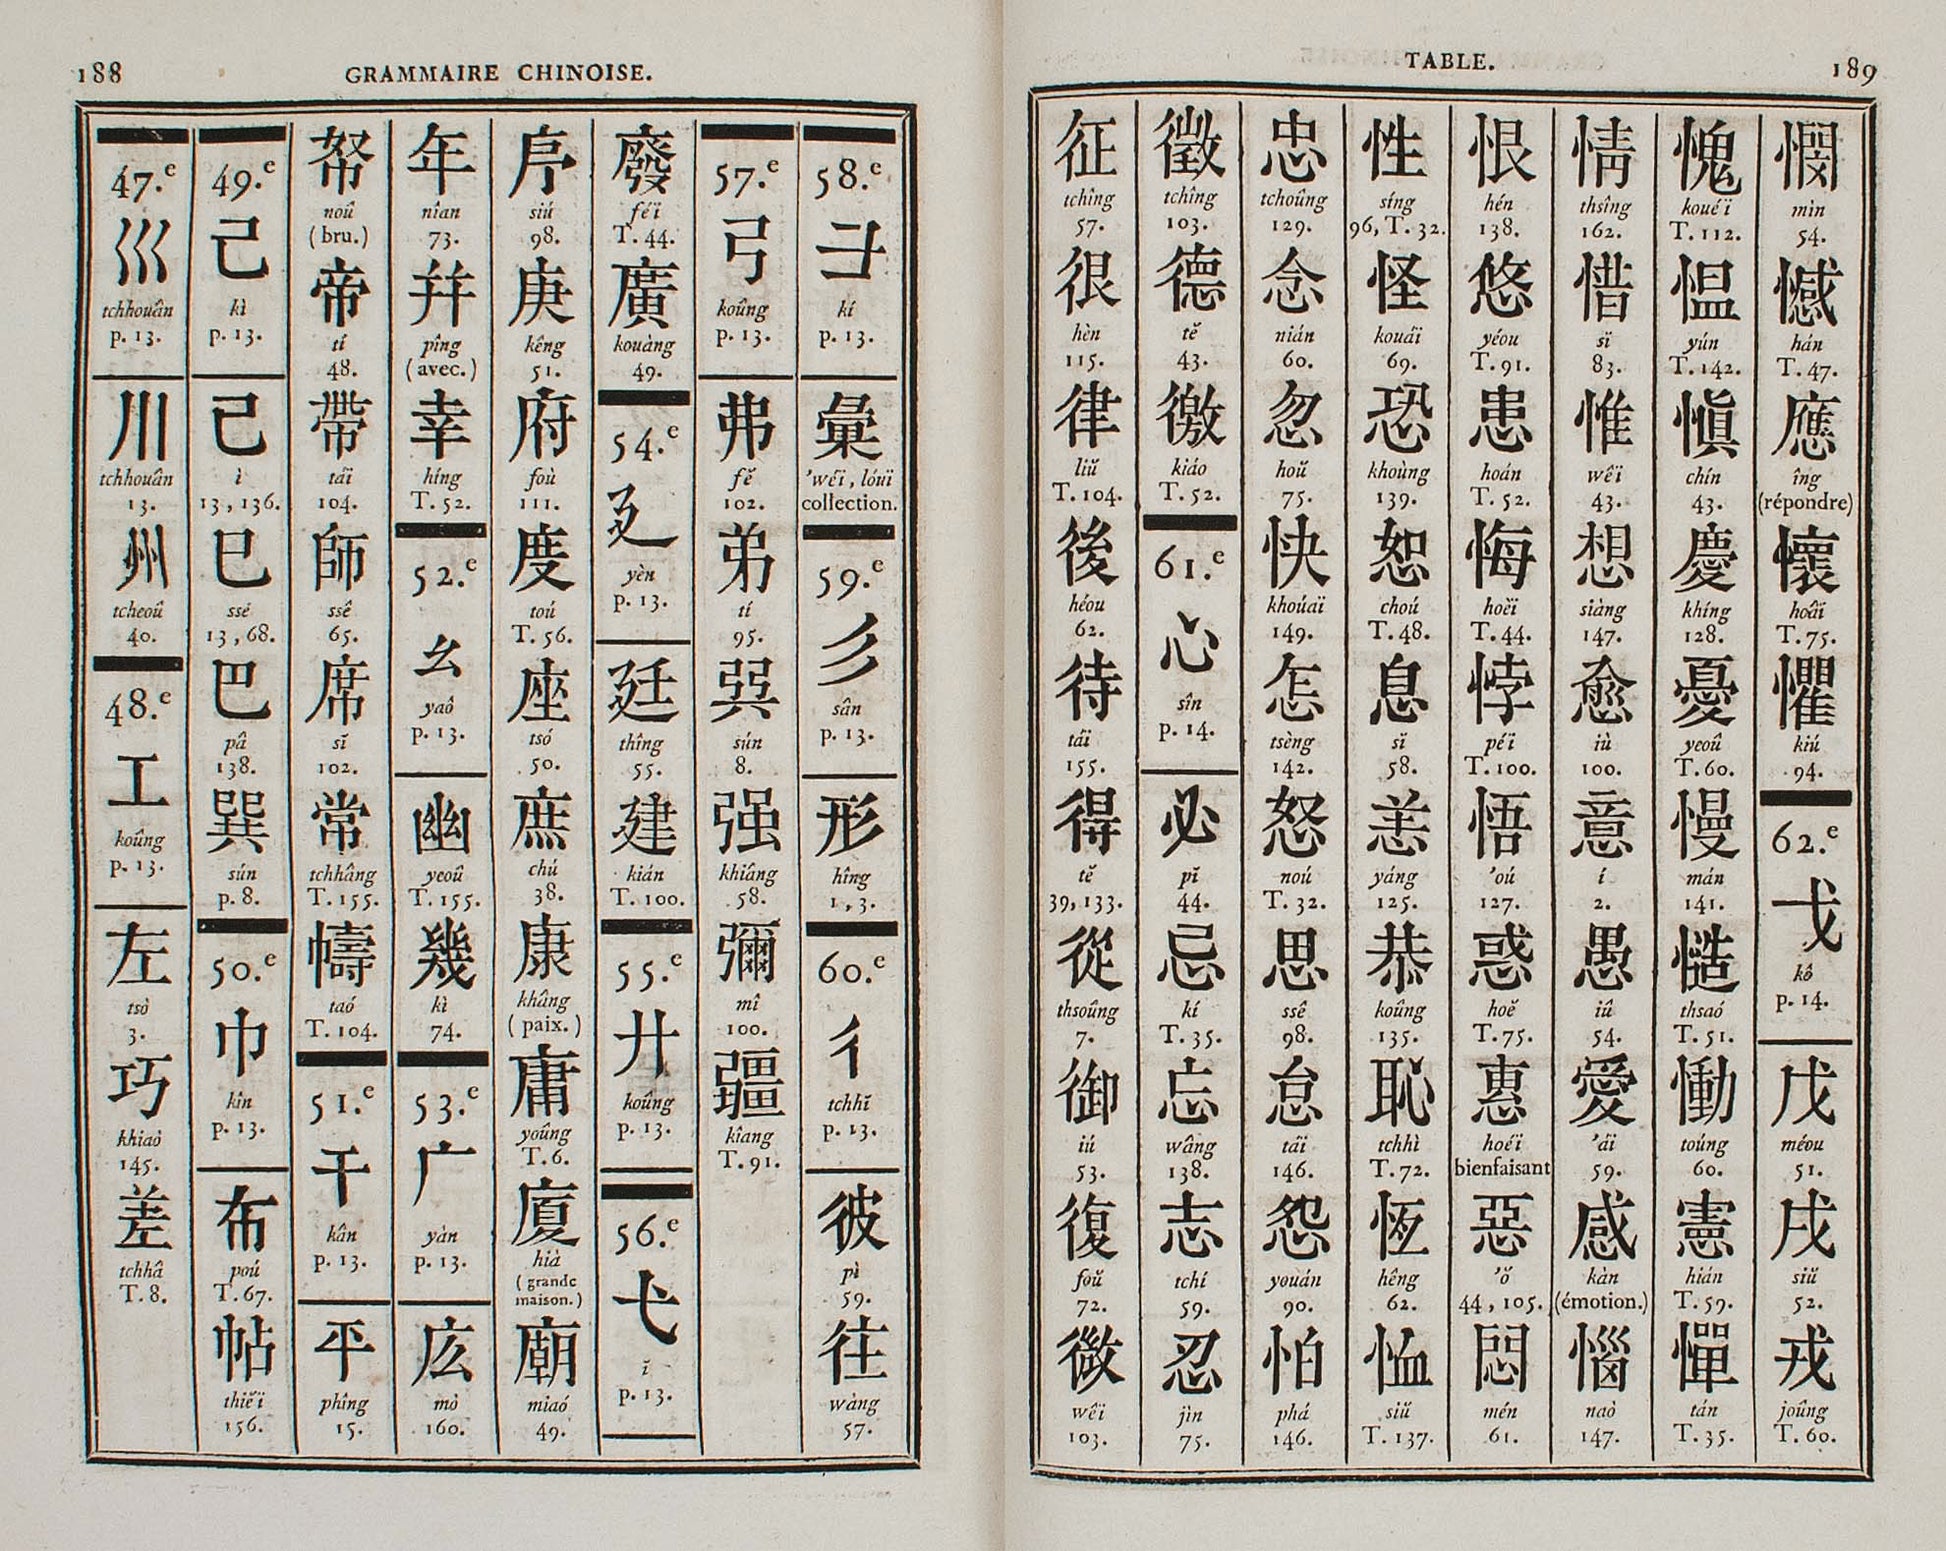 188
GRAMMAIRE CHINOISE.
47.e
巛
tchhouân
p. 13.
川
tchhouân
13.
州
tcheoû
40.
48.e
工
koûng
p. 13.
左
tsò
3.
巧
khiaò
145.
差
tchhâ
T. 8.
49.e
己
kì
p. 13.
已
ì
13, 136.
巳
ssé
13, 68.
巴
pâ
138.
巽
sún
p. 8.
50.e
巾
kîn
p. 13.
布
poú
T. 67.
帖
thiĕï
156.
帑
noû
(bru.)
帝
tí
48.
帶
táï
104.
師
ssê
65.
席
sĭ
102.
常
tchhâng
T. 155.
幬
taó
T. 104.
51.e
干
kân
p. 13.
平
phîng
15.
年
nîan
73.
幷
pîng
(avec.)
幸
híng
T. 52.
52.e
幺
yaô
p. 13.
幽
yeoû
T. 155.
幾
kì
74.
53.e
广
yàn
p. 13.
広
mò
160.
siú
98.
庚
kêng
51.
府
foù
111.
度
toú
T. 56.
座
tsó
50.
庶
chú
38.
康
khâng
(paix.)
庸
yoûng
T. 6.
廈
hià
(grande
maison.)
廟
miaó
49.
廢
féï
T. 44.
廣
kouàng
49.
54.e
廴
yèn
p. 13.
廷
thîng
55.
建
kián
T. 100.
55.e
廾
koûng
p. 13.
56.e
弋
ĭ
p. 13.
57.e
弓
koûng
p. 13.
弗
fĕ
102.
弟
tí
95.
sún
8.
强
khiâng
58.
彌
mî
100.
疆
kîang
T. 91.
58.e
彐
kí
p. 13.
彙
'wéï, lóuï
collection.
59.e
彡
sân
p. 13.
形
hîng
1, 3.
60.e
彳
tchhĭ
p. 13.
彼
pì
59.
往
wàng
57.
TABLE.
189
征
tchîng
57.
很
hèn
115.
律
liŭ
T. 104.
後
héou
62.
待
táï
155.
得
tĕ
39, 133.
從
thsoûng
7.
御
iú
53.
復
foŭ
72.
微
wêï
103.
徵
tchîng
103.
德
tĕ
43.
徼
kiáo
T. 52.
61.e
心
sîn
p. 14.
必
pĭ
44.
忌
kí
T. 35.
忘
wâng
138.
志
tchí
59.
忍
jìn
75.
忠
tchoûng
129.
念
nián
60.
忽
hoŭ
75.
快
khoúaï
149.
怎
tsèng
142.
怒
noú
T. 32.
思
ssê
98.
怠
táï
146.
怨
youán
90.
怕
phá
146.
性
síng
96, T. 32.
怪
kouáï
69.
恐
khoùng
139.
恕
choú
T. 48.
息
sĭ
58.
恙
yáng
125.
恭
koûng
135.
恥
tchhì
T. 72.
恆
hêng
62.
恤
siŭ
T. 137.
恨
hén
138.
悠
yéou
T. 91.
患
hoán
T. 52.
悔
hoëï
T. 44.
悖
péï
T. 100.
悟
'oú
127.
惑
hoĕ
T. 75.
惠
hoéï
bienfaisant
惡
'ŏ
44, 105.
悶
mén
61.
情
thsîng
162.
惜
sĭ
83.
惟
wêï
43.
想
siàng
147.
愈
iù
100.
意
í
2.
愚
iû
54.
愛
'áï
59.
感
kàn
(émotion.)
惱
naò
147.
愧
kouéï
T. 112.
愠
yún
T. 142.
愼
chín
43.
慶
khíng
128.
憂
yeoû
T. 60.
慢
mán
141.
慥
thsaó
T. 51.
慟
toúng
60.
憲
hián
T. 59.
憚
tán
T. 35.
憫
mìn
54.
憾
hán
T. 47.
應
îng
(répondre)
懷
hoâï
T. 75.
懼
kiú
94.
62.e
戈
kô
p. 14.
戊
méou
51.
戌
siŭ
52.
戎
joûng
T. 60.